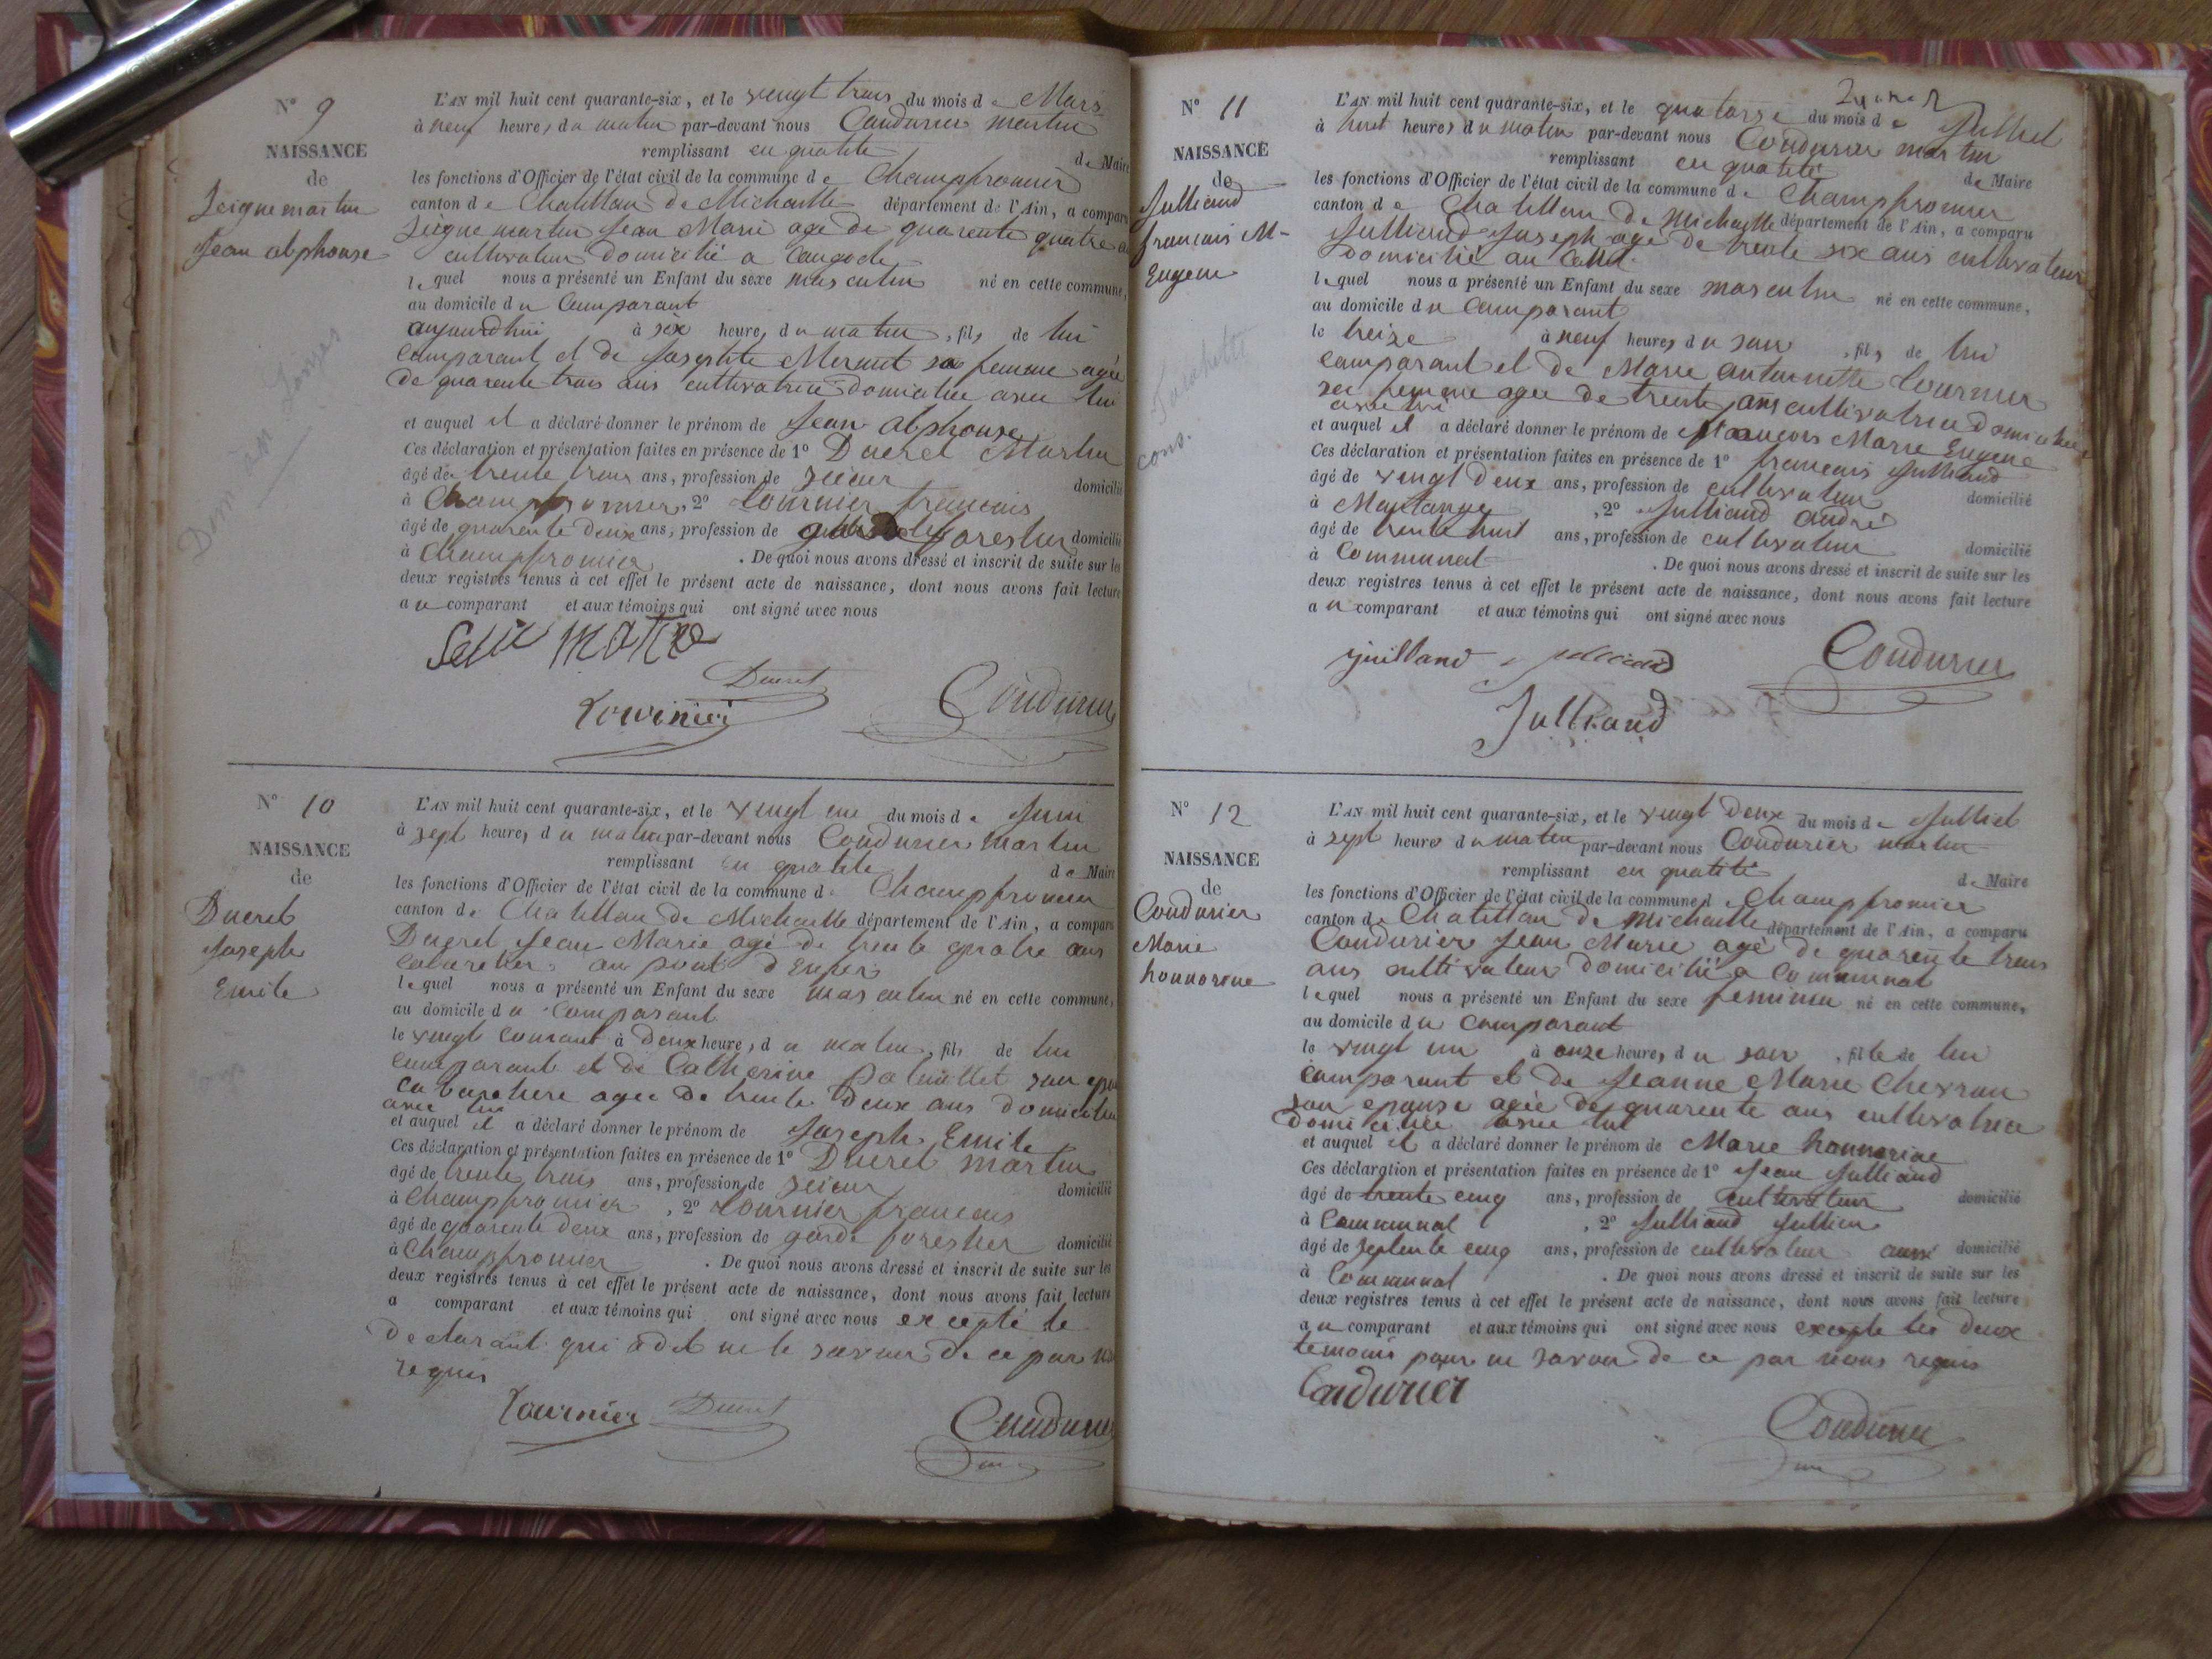 N° 9
NAISSANCE
de
Seigne martin
Jean alphonse
L'AN mil huit cent quarante-six, et le vingt trois du mois de Mars
à neuf heures du matin par-devant nous Coudurier martin
remplissant en qualité de Maire
les fonctions d'Officier de l'état civil de la commune de Champfromier
canton de Chatillon de Michaille département de l'Ain, a comparu
Seigne martin Jean Marie agé de quarente quatre
cultivateur domicilié a
lequel nous a présenté un Enfant du sexe masculin né en cette commune,
au domicile du Comparant
aujourdhui à six heures du matin, fils de lui
Comparant et de Josephte Mermet sa femme agée
de quarente trois ans cultivatrice domiciliée avec lui
et auquel il a déclaré donner le prénom de Jean alphonse
Ces déclaration et présentation faites en présence de 1° Ducret Martin
âgé de trente trois ans, profession de scieur domicilié
à Champfromier, 2° tournier francois
âgé de quarente deux ans, profession de garde forestier domicilié
à Champfromier . De quoi nous avons dressé et inscrit de suite sur les
deux registres tenus à cet effet le présent acte de naissance, dont nous avons fait lecture
au comparant et aux témoins qui ont signé avec nous
Ducret
Tournier
Coudurier
N° 10
NAISSANCE
de
Ducret
Joseph
Emile
L'AN mil huit cent quarante-six, et le vingt une du mois de Juin
à sept heures du matin par-devant nous Coudurier martin
remplissant en qualité de Maire
les fonctions d'Officier de l'état civil de la commune de Champfromier
canton de Chatillon de Michaille département de l'Ain, a comparu
Ducret Jean Marie agé de trente quatre ans
Cabaretier au pont d'Enfer
lequel nous a présenté un Enfant du sexe masculin né en cette commune,
au domicile du Comparant
le vingt courant à Deux heures, du matin, fils de lui
comparant et de Catherine son
cabaretiere agée de trente deux ans domiciliée
avec lui
et auquel il a déclaré donner le prénom de Joseph Emile
Ces déclaration et présentation faites en présence de 1° Ducret martin
âgé de trente trois ans, profession de scieur domicilié
à Champfromier, 2° tournier francois
âgé de quarente deux ans, profession de garde forestier domicilié
à Champfromier . De quoi nous avons dressé et inscrit de suite sur les
deux registres tenus à cet effet le présent acte de naissance, dont nous avons fait lecture
a comparant et aux témoins qui ont signé avec nous excepté le
declarant qui a dit ne le savoir de ce par nous
requis
Tournier Ducret
Coudurier
N° 11
NAISSANCE
de
Julliand
francois M-
Eugene
L'AN mil huit cent quarante-six, et le quatorze du mois de Julliet
à huit heures du matin par-devant nous Coudurier martin
remplissant en qualité de Maire
les fonctions d'Officier de l'état civil de la commune de Champfromier
canton de Chatillon de Michaille département de l'Ain, a comparu
Julliand Joseph agé de trente six ans cultivateur
Domicilié au
lequel nous a présenté un Enfant du sexe masculin né en cette commune,
au domicile du Comparant
le treize à neuf heures du soir, fils de lui
comparant et de Marie antoinette tournier
sa femme agée de trente ans cultivatrice domiciliée
avec lui
et auquel il a déclaré donner le prénom de francois Marie Eugene
Ces déclaration et présentation faites en présence de 1° francois Julliand
âgé de vingt deux ans, profession de cultivateur domicilié
à Montanges, 2° Julliand andré
âgé de trente huit ans, profession de cultivateur domicilié
à Communal . De quoi nous avons dressé et inscrit de suite sur les
deux registres tenus à cet effet le présent acte de naissance, dont nous avons fait lecture
au comparant et aux témoins qui ont signé avec nous
Coudurier
Julliand
N° 12
NAISSANCE
de
Coudurier
Marie
honnorine
L'AN mil huit cent quarante-six, et le vingt Deux du mois de Julliet
à sept heures du matin par-devant nous Coudurier martin
remplissant en qualité de Maire
les fonctions d'Officier de l'état civil de la commune de Champfromier
canton de Chatillon de Michaille département de l'Ain, a comparu
Coudurier Jean Marie agé de quarente trois
ans cultivateur Domicilié a Communal
lequel nous a présenté un Enfant du sexe feminin né en cette commune,
au domicile du comparant
le vingt un à onze heures, du soir, fille de lui
comparant et de Jeanne Marie Chevron
son epouse agée de quarente ans cultivatrice
domiciliée avec lui
et auquel il a déclaré donner le prénom de Marie honnorine
Ces déclaration et présentation faites en présence de 1° Jean Julliand
âgé de trente cinq ans, profession de cultivateur domicilié
à Communal, 2° Julliand Jullien
âgé de septente cinq ans, profession de cultivateur aussi domicilié
à Communal . De quoi nous avons dressé et inscrit de suite sur les
deux registres tenus à cet effet le présent acte de naissance, dont nous avons fait lecture
au comparant et aux témoins qui ont signé avec nous excepte les deux
temoins pour ne savoir de ce par nous requis
Coudurier
Coudurier